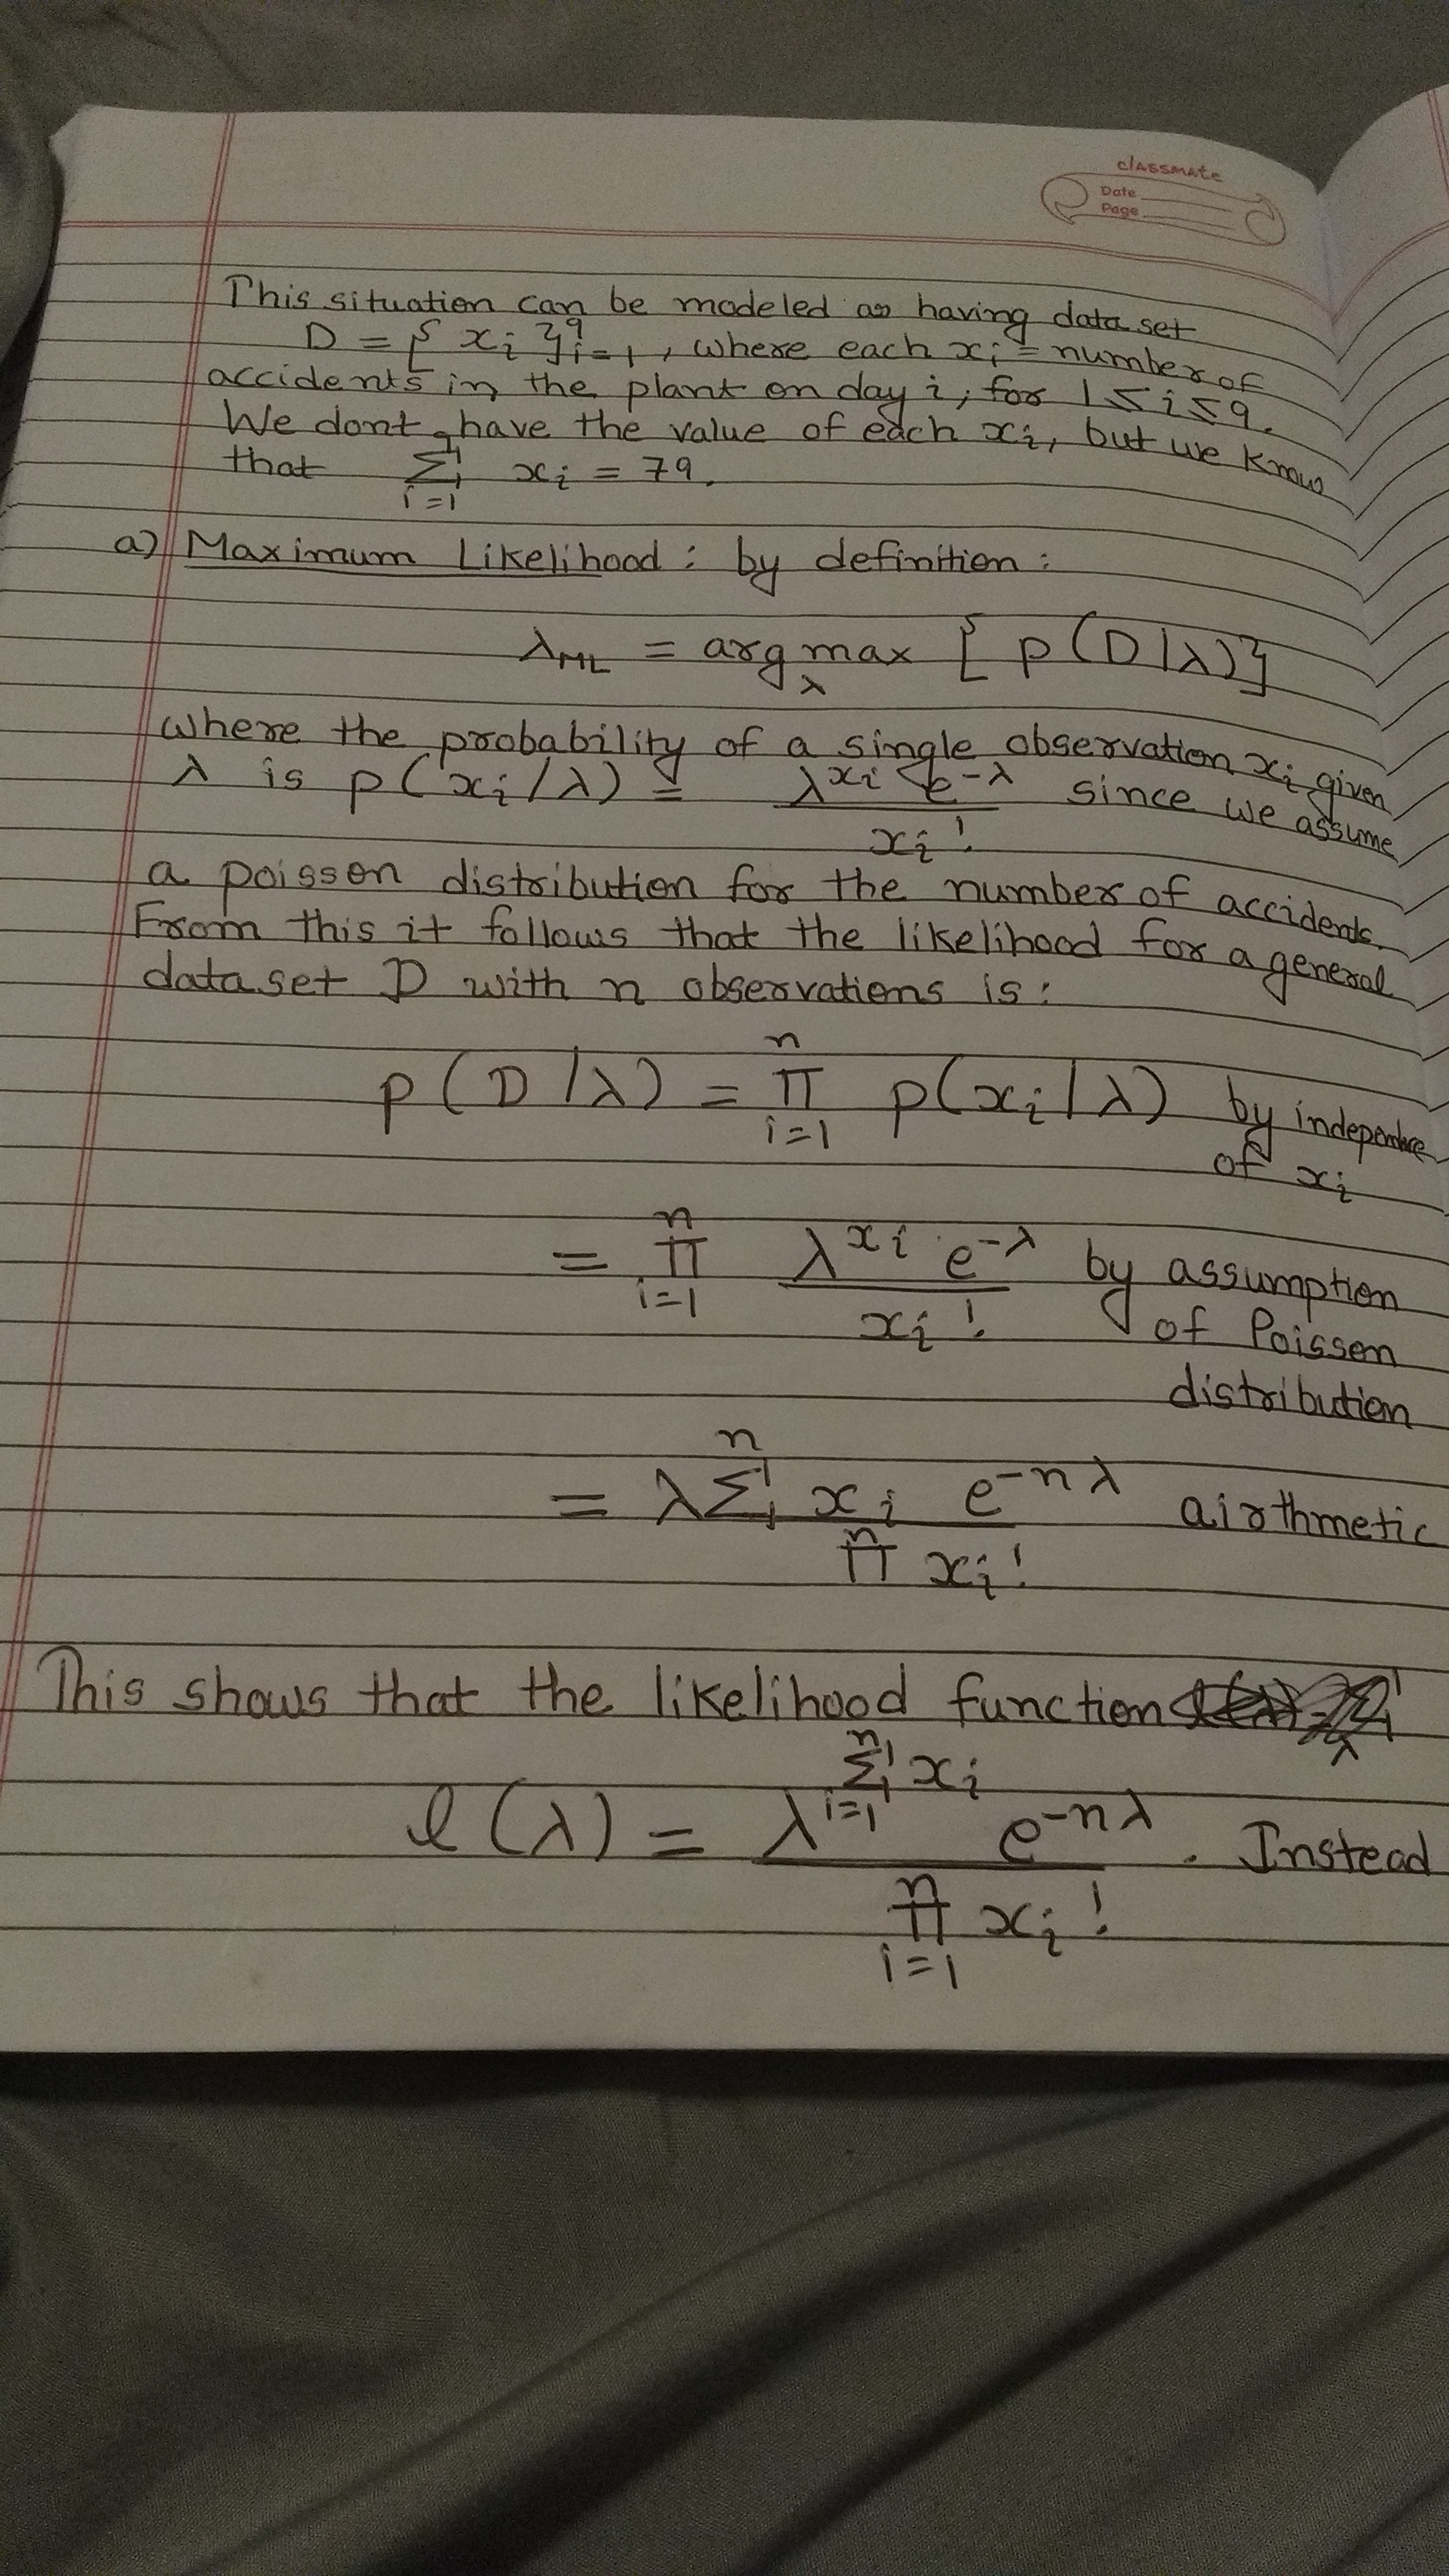 classmate
Date
Page
This situation can be modeled as having data set
D = { xi }⁹i=1, where each xi = number of
accidents in the plant on day i, for 1 ≤ i ≤ 9.
We dont have the value of each xi, but we know
that Σ i=1 xi = 79.
a) Maximum Likelihood : by definition :
λML = arg max λ [ p(D|λ)}]
where the probability of a single observation xi given
λ is p(xi/λ) = λ^xi e^-λ / xi! since we assume
a poisson distribution for the number of accidents.
From this it follows that the likelihood for a general
data set D with n observations is :
p(D/λ) = n Π i=1 p(xi|λ) by independence
of xi
= n Π i=1 λ^xi e^-λ / xi! by assumption
of Poisson
distribution
= λ n Σ xi e^-nλ / n Π xi! airthmetic
This shows that the likelihood function
l(λ) = λ^(n Σ i=1 xi) e^-nλ / n Π i=1 xi! . Instead